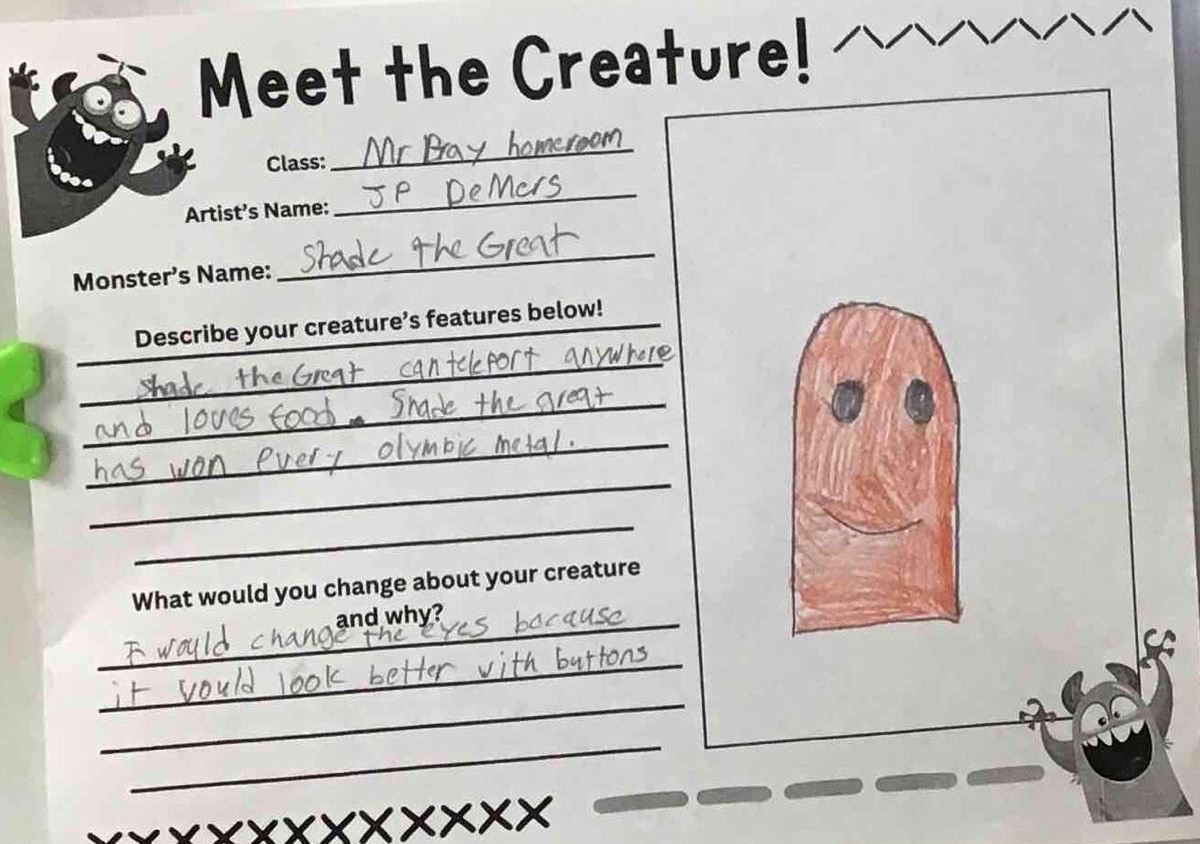 Meet the Creature!
Class: Mr Bray homeroom
Artist's Name: JP DeMers
Monster's Name: Shade the Great
Describe your creature's features below!
Shade the Great can teleport anywhere
and loves food. Shade the great
has won every olympic metal.
What would you change about your creature
and why?
I would change the eyes bacause
it vould look better vith buttons